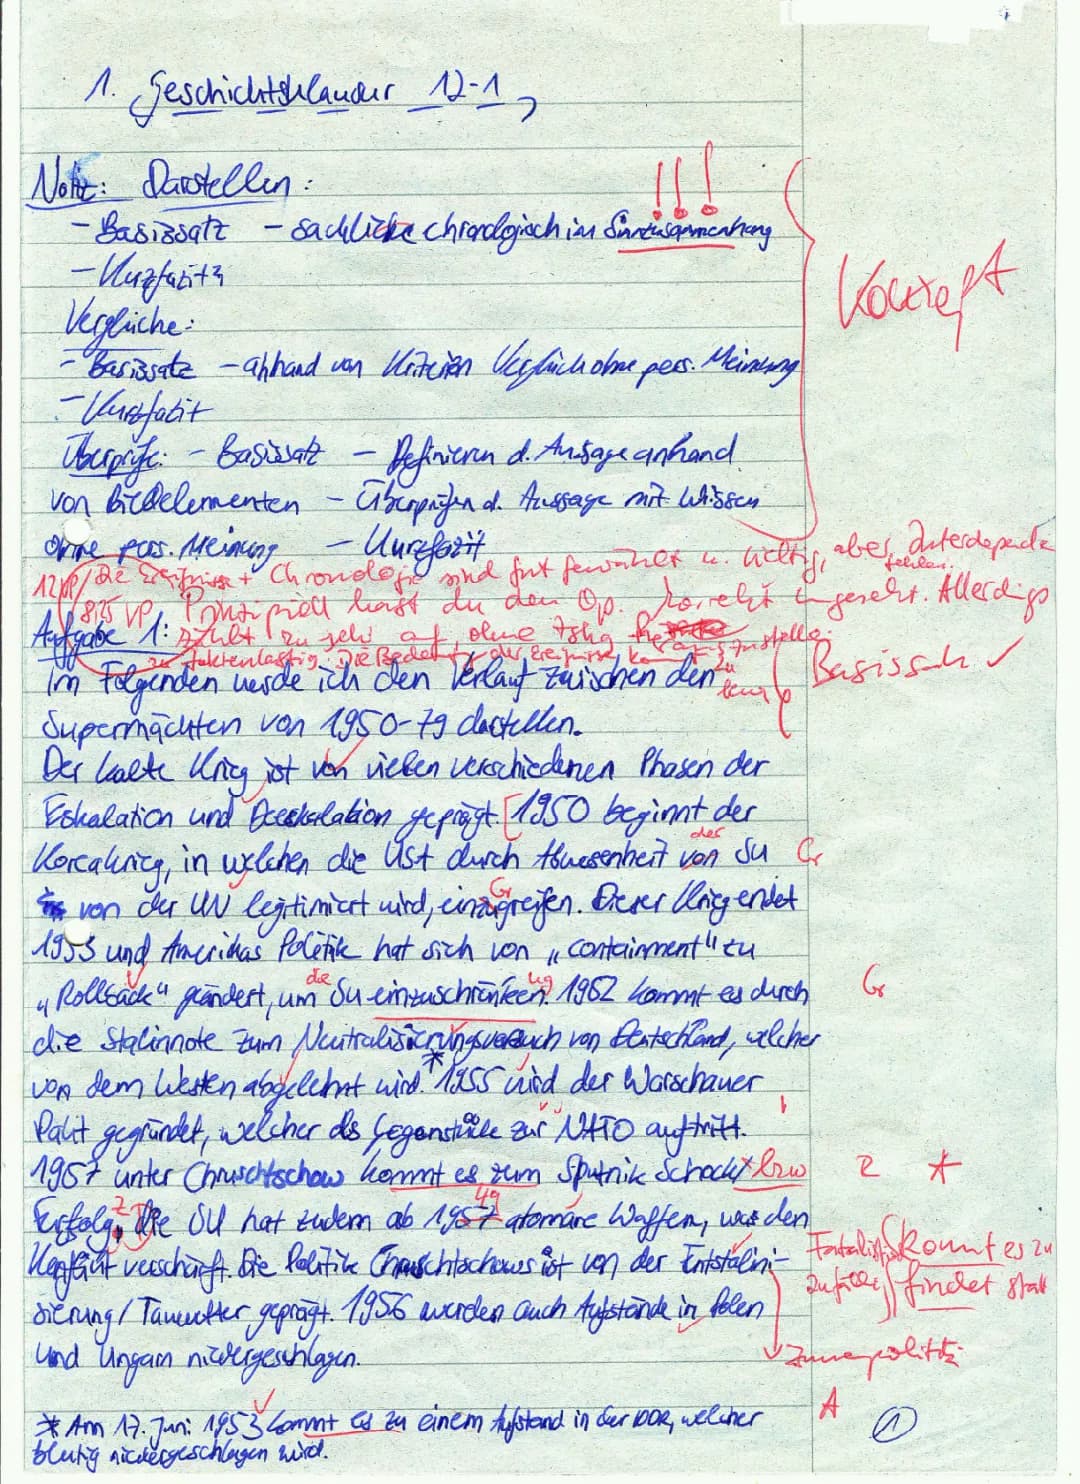 1. Geschichtsklausur 12-1
Notiz: Darstellen:
- Basissatz - sachliche chronologisch im Sinnzusammenhang
!!!
- Kurzfazit
Konzept
Vergleiche:
- Basissatz - anhand von Kriterien Vergleich ohne pers. Meinung
- Kurzfazit
Überprüfe: - Basissatz - Definieren d. Aussage anhand
von Bildelementen - Überprüfen d. Aussage mit Wissen
ohne pers. Meinung - Kurzfazit
Die Ereignisse + Chronologie sind gut gewählt u. richtig, aber
fehlen.
Prinzipiell hast du den Op. korrekt umgesetzt. Allerdings
Aufgabe 1: zu sehr auf, ohne
zu faktenlastig. Die der Ereignisse
Basissatz ✓
Im Folgenden werde ich den Verlauf zwischen den
Supermächten von 1950-79 darstellen.
Der kalte Krieg ist von vielen verschiedenen Phasen der
Eskalation und Deeskalation geprägt. [1950 beginnt der
der
Koreakrieg, in welchen die USA durch Abwesenheit von SU Gr
Gr
von der UN legitimiert wird, einzugreifen. Dieser Krieg endet
1953 und Amerikas Politik hat sich von „containment" zu
die
„Rollback" geändert, um SU einzuschränken. 1952 kommt es durch Gr
die Stalinnote zum Neutralisierungsversuch von Deutschland, welcher
von dem Westen abgelehnt wird.* 1955 wird der Warschauer
Pakt gegründet, welcher als Gegenstück zur NATO auftritt.
1957 unter Chruschtschow kommt es zum Sputnik Schock bzw Z *
49
Erfolg, Die SU hat zudem ab 1957 atomare Waffen, was den
Konflikt verschärft. Die Politik Chruschtschows ist von der Entstalini-
kommt es zu
findet statt
sierung/Tauwetter geprägt. 1956 werden auch Aufstände in Polen
und Ungarn niedergeschlagen.
Innenpolitik
* Am 17. Juni 1953 kommt es zu einem Aufstand in der DDR, welcher A
blutig niedergeschlagen wird.
1